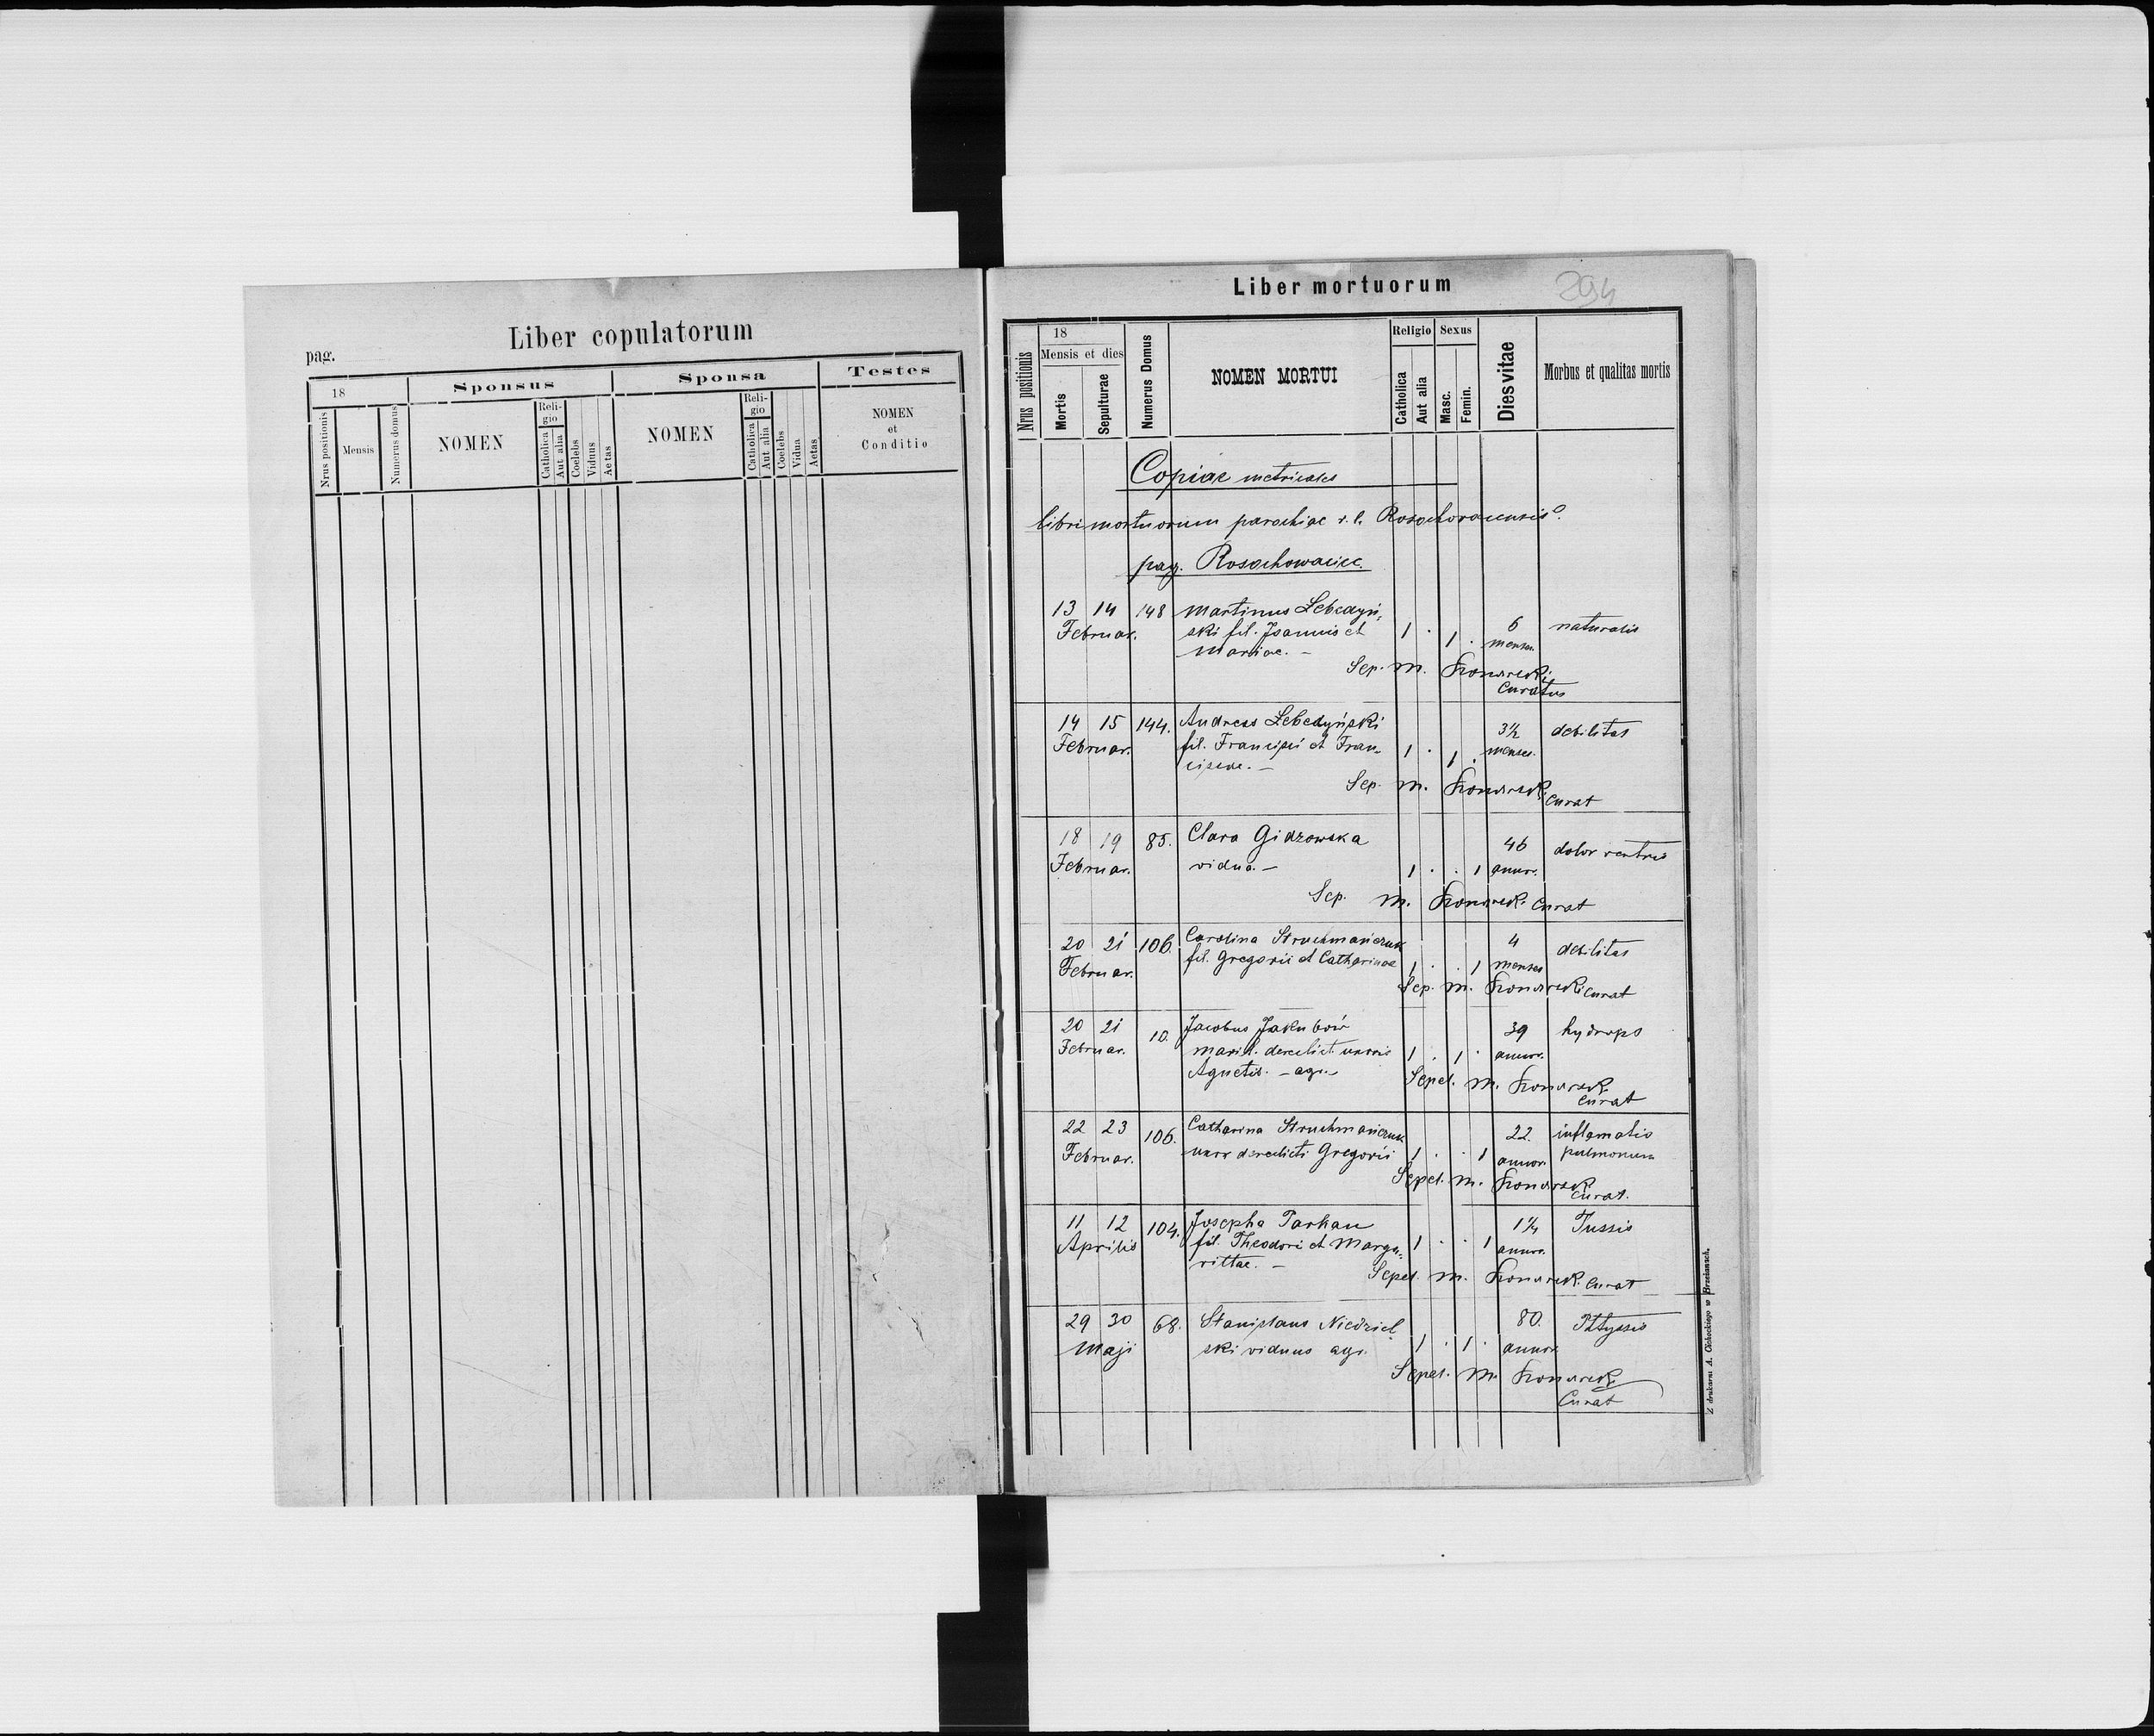 Liber copulatorum
pag.
18
Sponsus
Sponsa
Testes
Nrus positionis
Mensis
Numerus domus
NOMEN
Reli-
gio
Catholica
Aut alia
Coelebs
Viduus
Aetas
NOMEN
Reli-
gio
Catholica
Aut alia
Coelebs
Vidua
Aetas
NOMEN
et
Conditio
Liber mortuorum
294
Nrus positionis
18
Mensis et dies
Mortis
Sepulturae
Numerus Domus
NOMEN MORTUI
Religio
Catholica
Aut alia
Sexus
Masc.
Femin.
Dies vitae
Morbus et qualitas mortis
Copiae metricales
libri mortuorum parochiae r. l.
pag. Rosochowaciec.
13 14 148 Martinus Lebedyń-
Februar. ski fil. Joannis et 1 . 1 . 6 naturalis
Mariae. – mensu
Sep. M.
Curatus
14 15 144. Andreas Lebedyński 3½ debilitas
Februar. fil. Francisci et Fran- 1 . 1 . menses.
ciscae. –
Sep. M. Curat
18 19 85. Clara Gidzowska 46 dolor ventris
Februar. vidua. – 1 . . 1 annor.
Sep. M. Curat
20 21 106. Carolina Struchmańczuk 4 debilitas
Februar. fil. Gregorii et Catharinae 1 . . 1 menses
Sep. M. Curat
20 21 10. Jacobus Jakubów 39 hydrops
Februar. marit. derelict. uxoris 1 . 1 . annor.
Agnetis. – agr.
Sepel. M.
Curat
22 23 106. Catharina Struchmańczuk 22. inflamatio
Februar. uxor derelicti Gregorii 1 . . 1 annor. pulmonum
Sepel. M.
Curat.
11 12 104. Josepha Parhan 1¼ Tussis
Aprilis fil. Theodori et Marga- 1 . . 1 annor.
rittae. –
Sepel. M. Curat
29 30 68. Stanislaus Niedziel 80. Phtyssis
Maji ski viduus agr. 1 . 1 . annor.
Sepel. M.
Curat
Z drukarni A. w Brzeżanach.